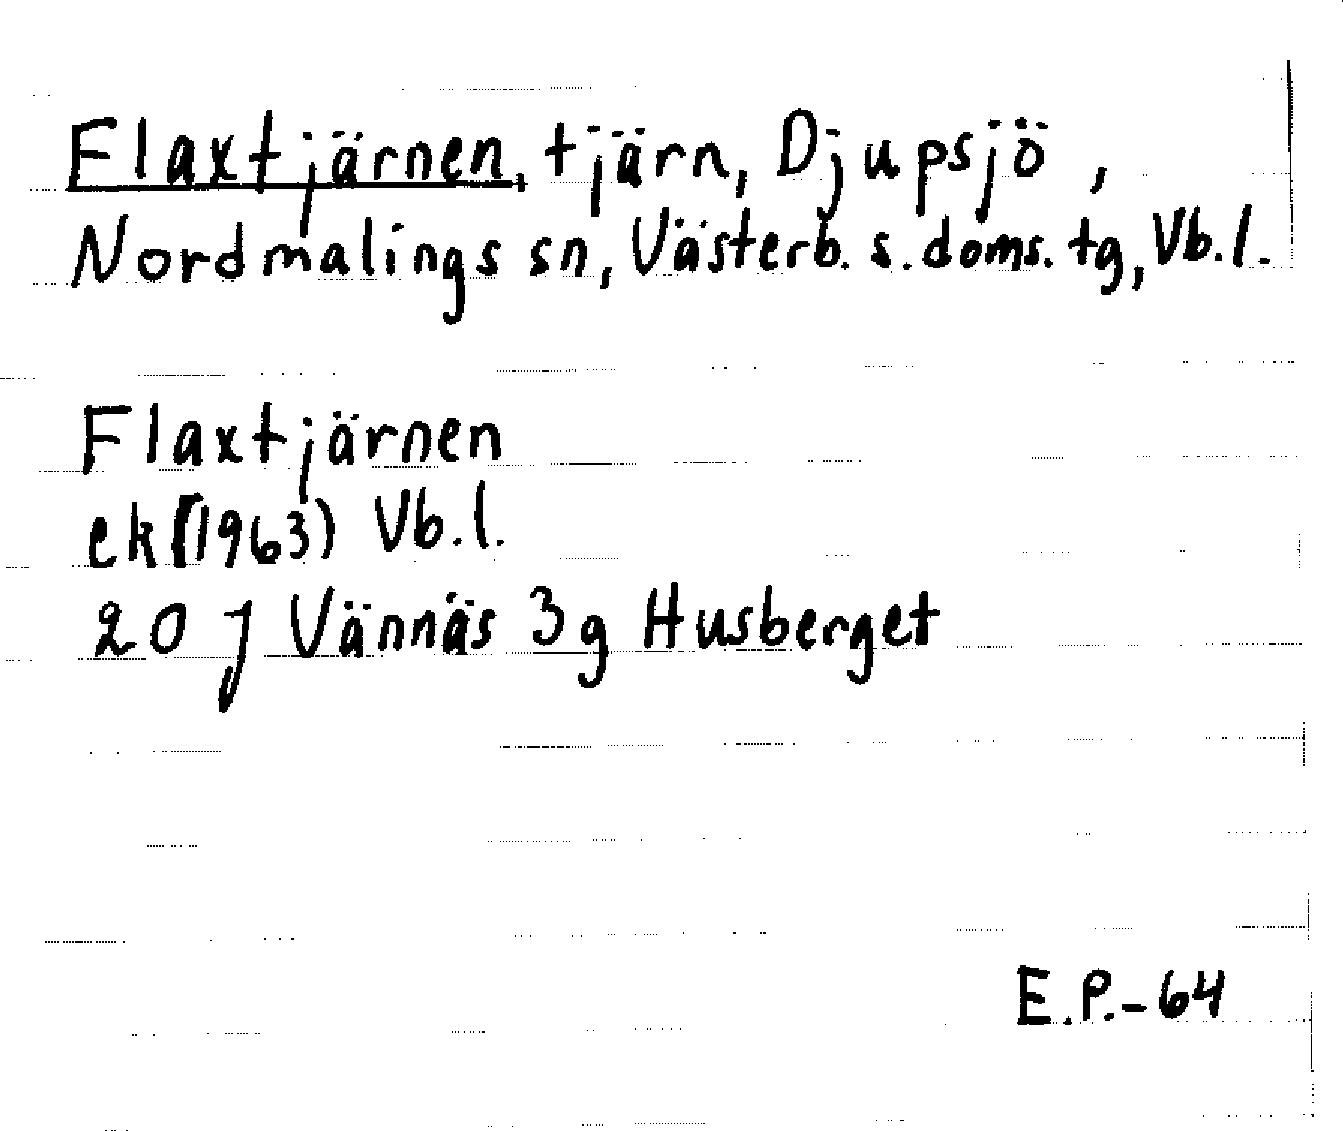 Flaxtjärnen, tjärn, Djupsjö,
Nordmalings sn, Västerb. s. doms. tg, Vb. l.
Flaxtjärnen
ek (1963) Vb. l.
20 J Vännäs 3g Husberget
E.P.-64